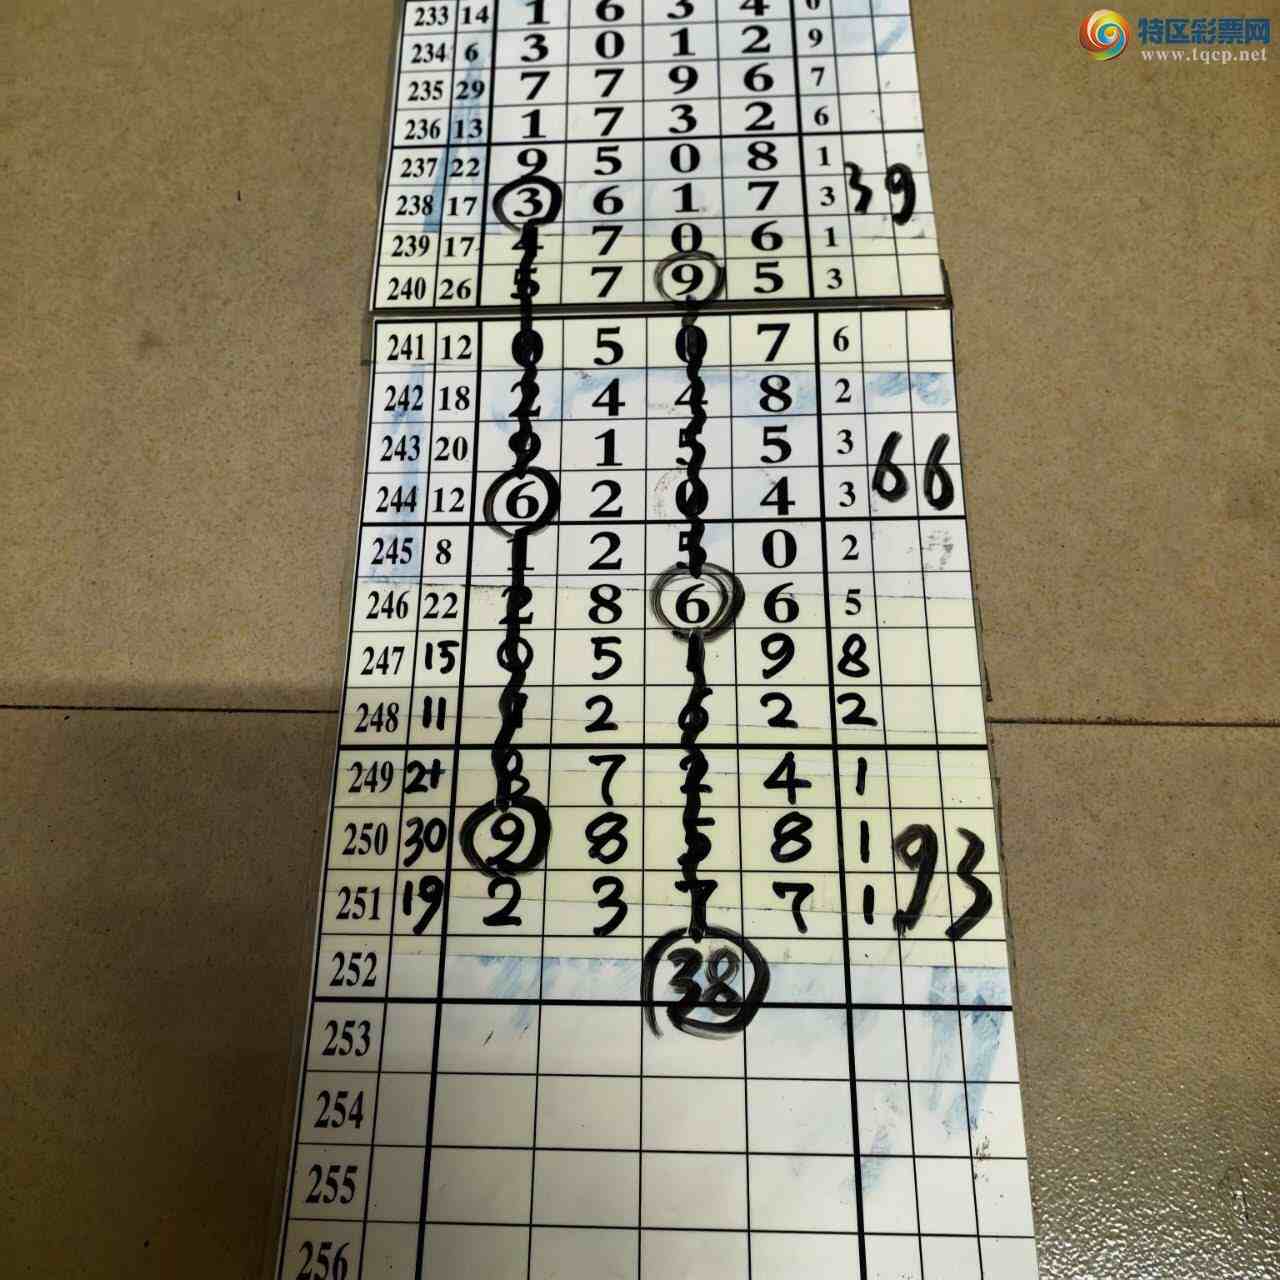 特区彩票网
www.tqcp.net
233 14 1 6 3 4 0
234 6 3 0 1 2 9
235 29 7 7 9 6 7
236 13 1 7 3 2 6
237 22 9 5 0 8 1
238 17 3 6 1 7 3 39
239 17 4 7 0 6 1
240 26 5 7 9 5 3
241 12 0 5 0 7 6
242 18 2 4 4 8 2
243 20 9 1 5 5 3
244 12 6 2 0 4 3 66
245 8 1 2 5 0 2
246 22 2 8 6 6 5
247 15 0 5 1 9 8
248 11 1 2 6 2 2
249 21 8 7 2 4 1
250 30 9 8 5 8 1 93
251 19 2 3 7 7 1
252 38
253
254
255
256